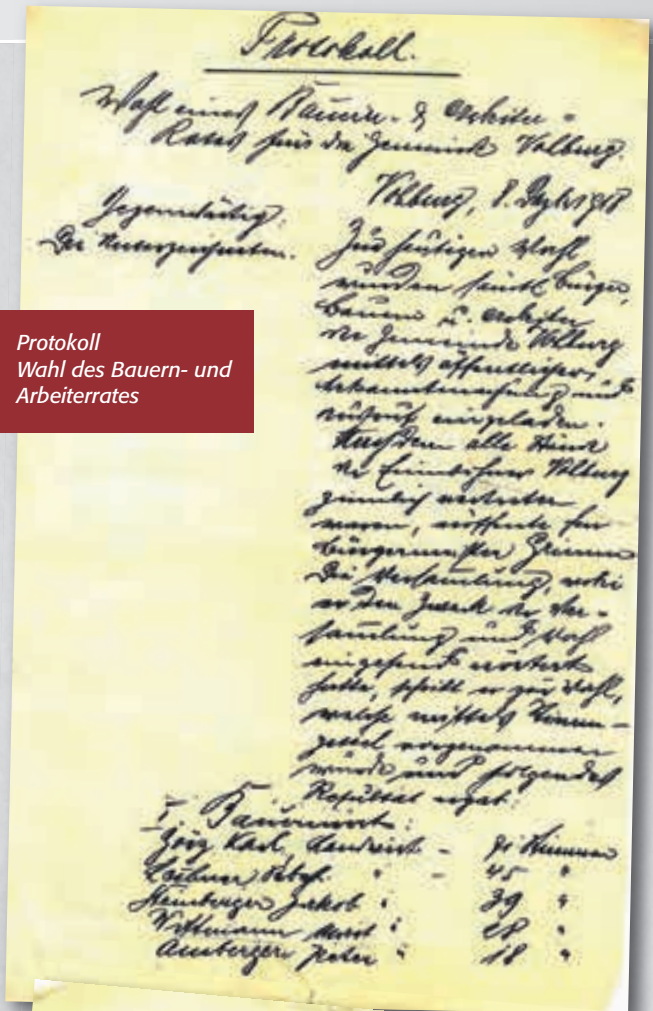 Protokoll.
Wahl eines Bauern- & Arbeiter-
Rates für die Gemeinde Velburg.
Velburg, 8. Dezbr 1918
Gegenwärtig:
Die Unterzeichneten.
Zur heutigen Wahl
wurden sämtl. Bürger,
Bauern u. Arbeiter
der Gemeinde Velburg
mittels öffentlicher
Bekanntmachung und
eingeladen.
Nachdem alle
der Einwohner Velburg
ziemlich vertreten
waren, eröffnete Herr
Bürgermeister
die Versammlung, wobei
er den Zweck der Ver-
samlung und Wahl
eingehend erörtert
hatte, schritt er zur Wahl,
welche mittels Stimm-
zettel vorgenommen
wurde und folgendes
Resultat ergab:
I. Bauernrat:
Götz Karl, Landwirt - Stimmen
" - 45 "
Jakob " 39 "
Wittmann " 28 "
Amberger Peter " 18 "
Protokoll
Wahl des Bauern- und
Arbeiterrates